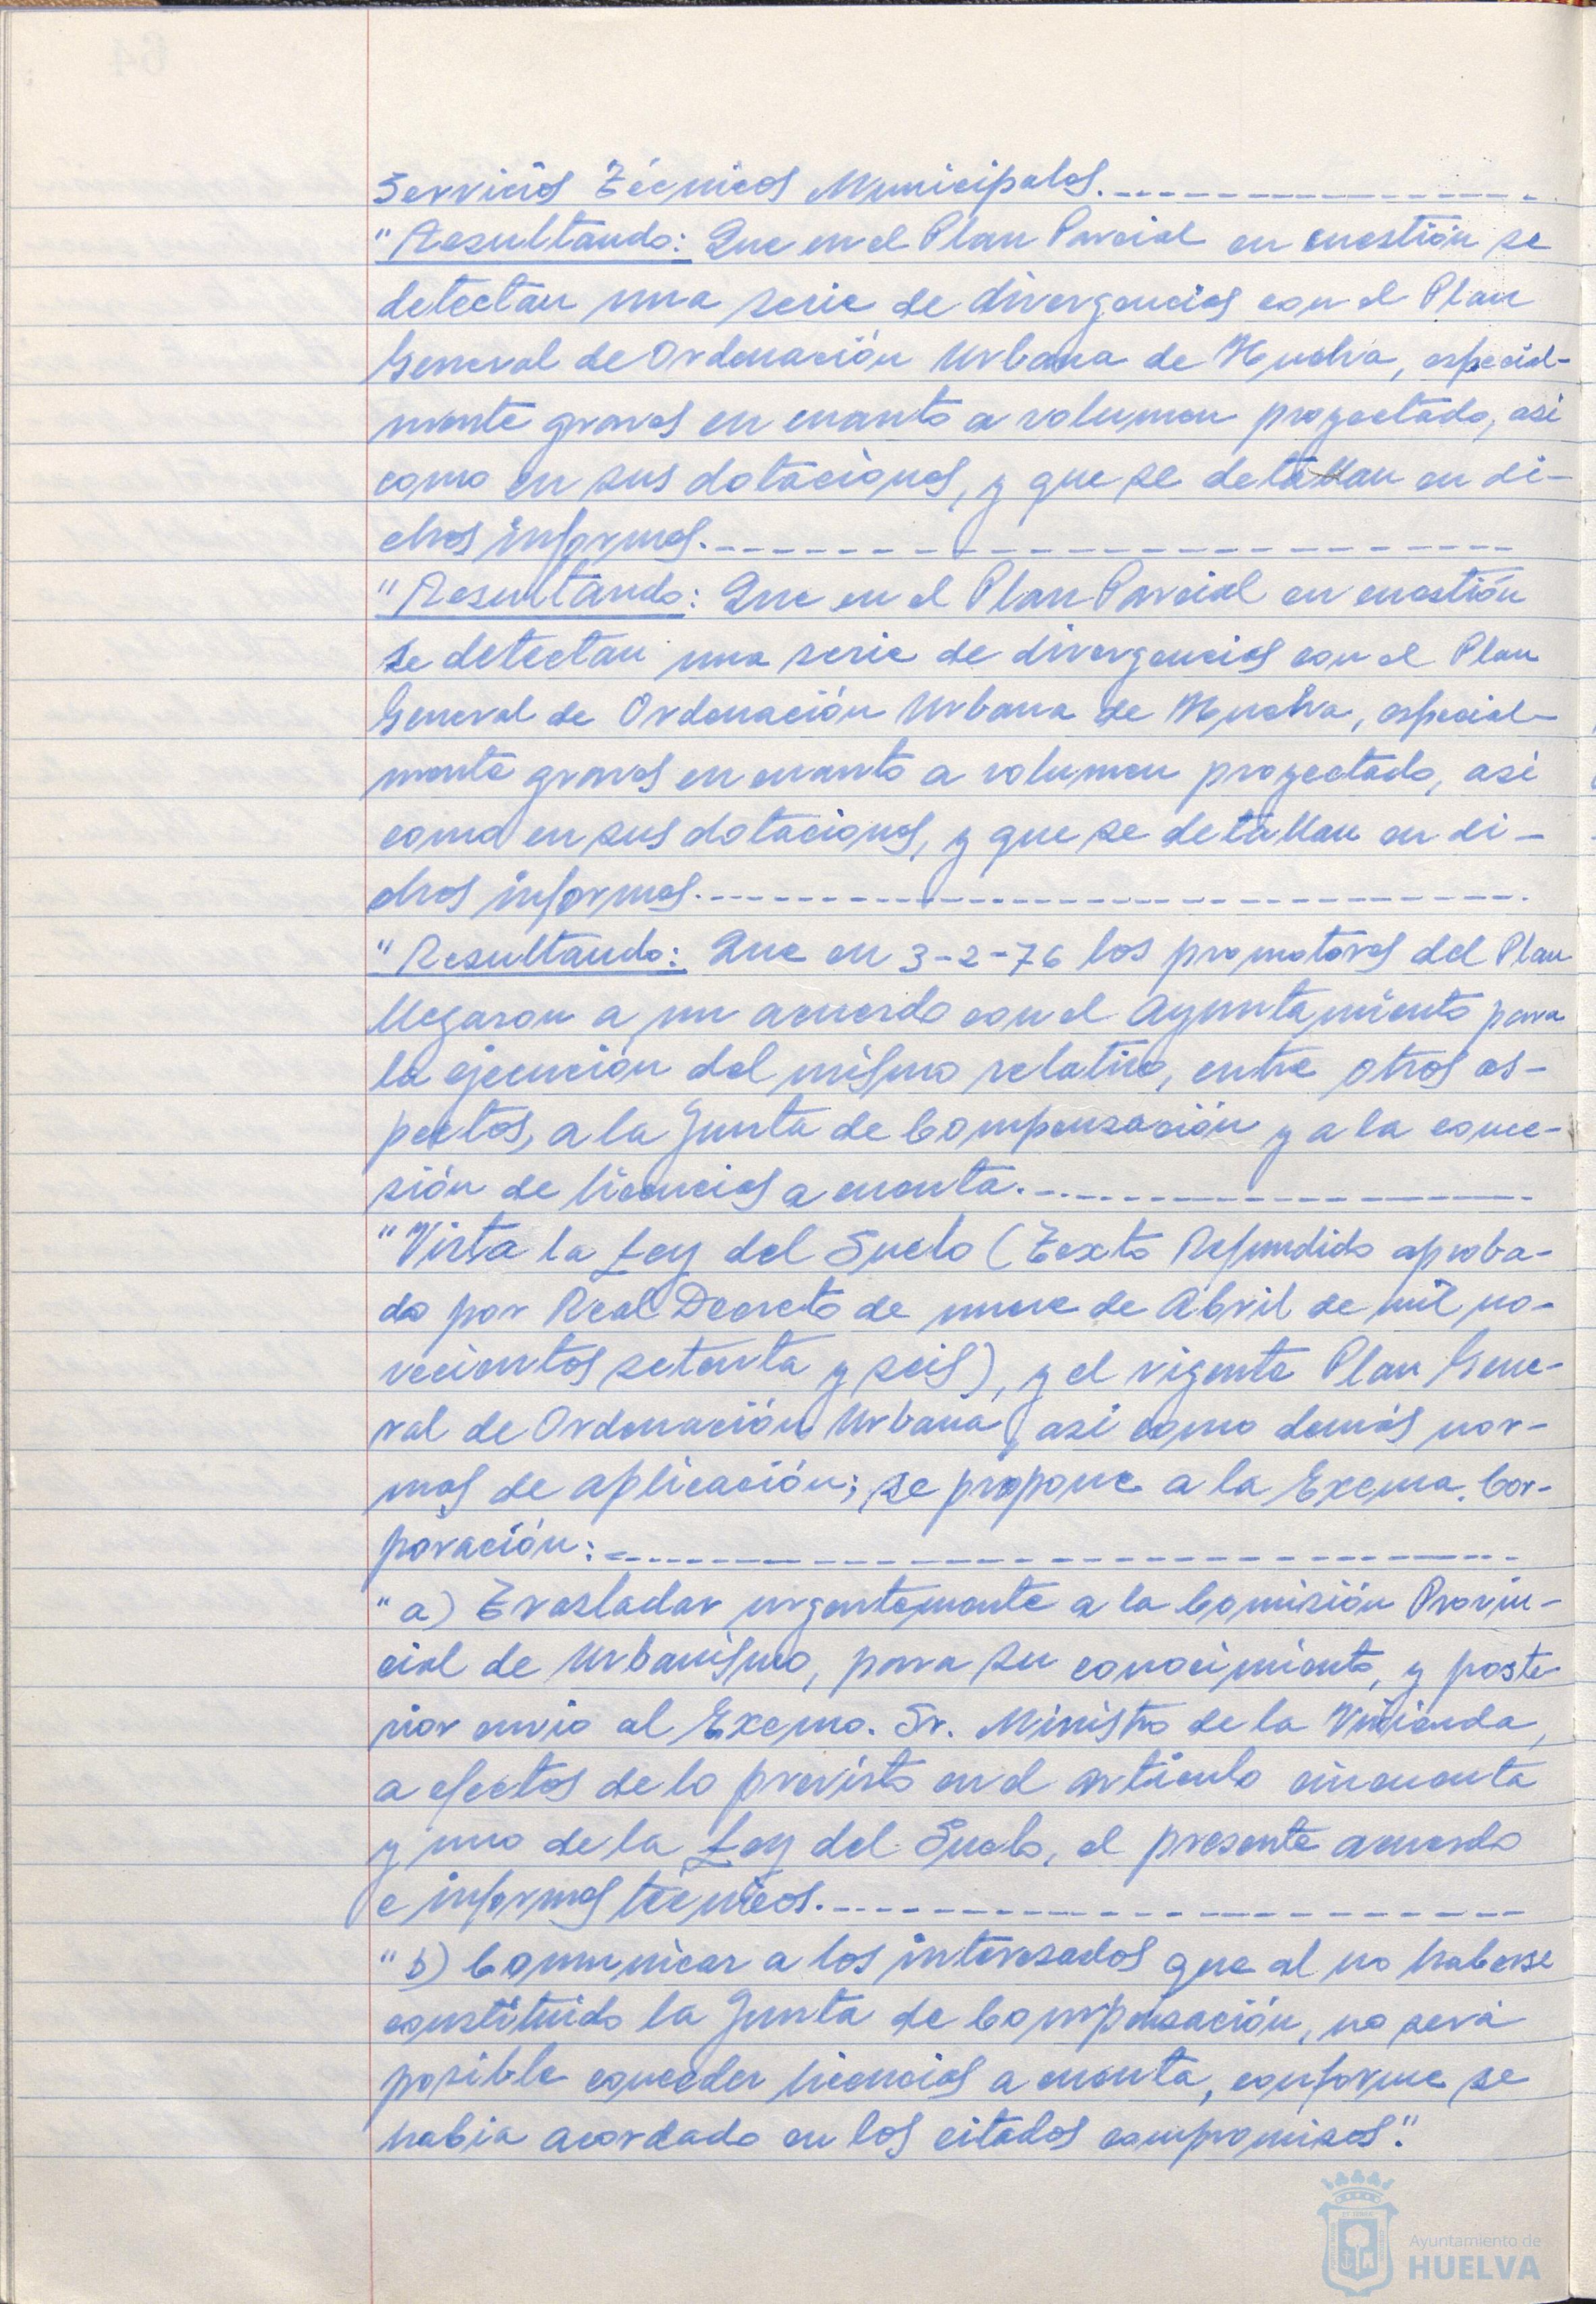 Servicios Técnicos Municipales.
"Resultando: Que en el Plan Parcial en cuestión se
detectan una serie de divergencias con el Plan
General de Ordenación Urbana de Huelva, especial-
mente graves en cuanto a volumen proyectado, asi
como en sus dotaciones, y que se detallan en di-
chos informes.
"Resultando: Que en el Plan Parcial en cuestión
se detectan una serie de divergencias con el Plan
General de Ordenación Urbana de Huelva, especial-
mente graves en cuanto a volumen proyectado, asi
como en sus dotaciones, y que se detallan en di-
chos informes.
"Resultando: Que en 3-2-76 los promotores del Plan
llegaron a un acuerdo con el Ayuntamiento para
la ejecución del mismo relativo, entre otros as-
pectos, a la Junta de Compensación y a la conce-
sión de licencias a cuenta.
"Vista la Ley del Suelo (Texto Refundido aproba-
do por Real Decreto de nueve de Abril de mil no-
vecientos setenta y seis), y el vigente Plan Gene-
ral de Ordenación Urbana, asi como demás nor-
mas de aplicación; se propone a la Excma. Cor-
poración:
"a) Trasladar urgentemente a la Comisión Provin-
cial de Urbanismo, para su conocimiento, y poste-
rior envio al Excmo. Sr. Ministro de la Vivienda,
a efectos de lo previsto en el articulo cincuenta
y uno de la Ley del Suelo, el presente acuerdo
e informes técnicos.
"b) Comunicar a los interesados que al no haberse
constituido la Junta de Compensación, no será
posible conceder licencias a cuenta, conforme se
habia acordado en los citados compromisos".
Ayuntamiento de
HUELVA